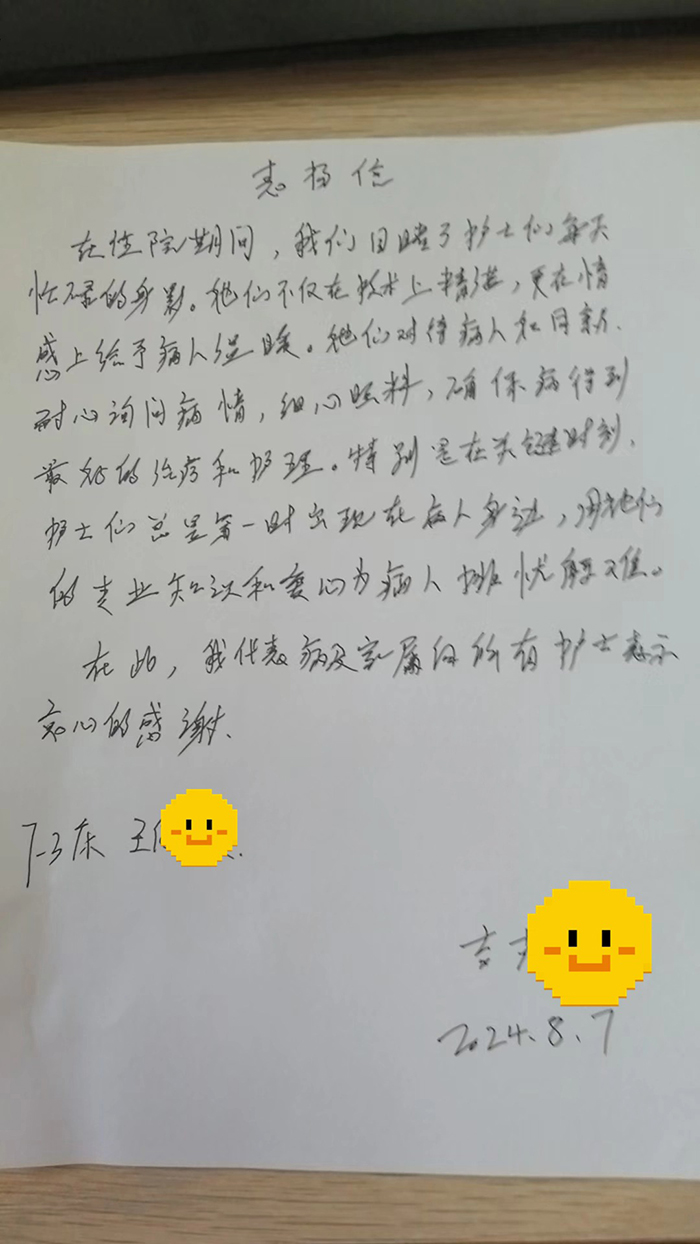 表扬信
在住院期间，我们目睹了护士们每天
忙碌的身影。他们不仅在技术上精湛，更在情
感上给予病人温暖。他们对待病人和同亲.
耐心询问病情，细心照料，确保病得到
最好的治疗和护理。特别是在关键时刻.
护士们总是第一时出现在病人身边，用他们
的专业知识和爱心为病人排忧解又焦。
在此，我代表病及家属向所有护士表示
衷心的感谢.
7-3床 王
2024.8.7